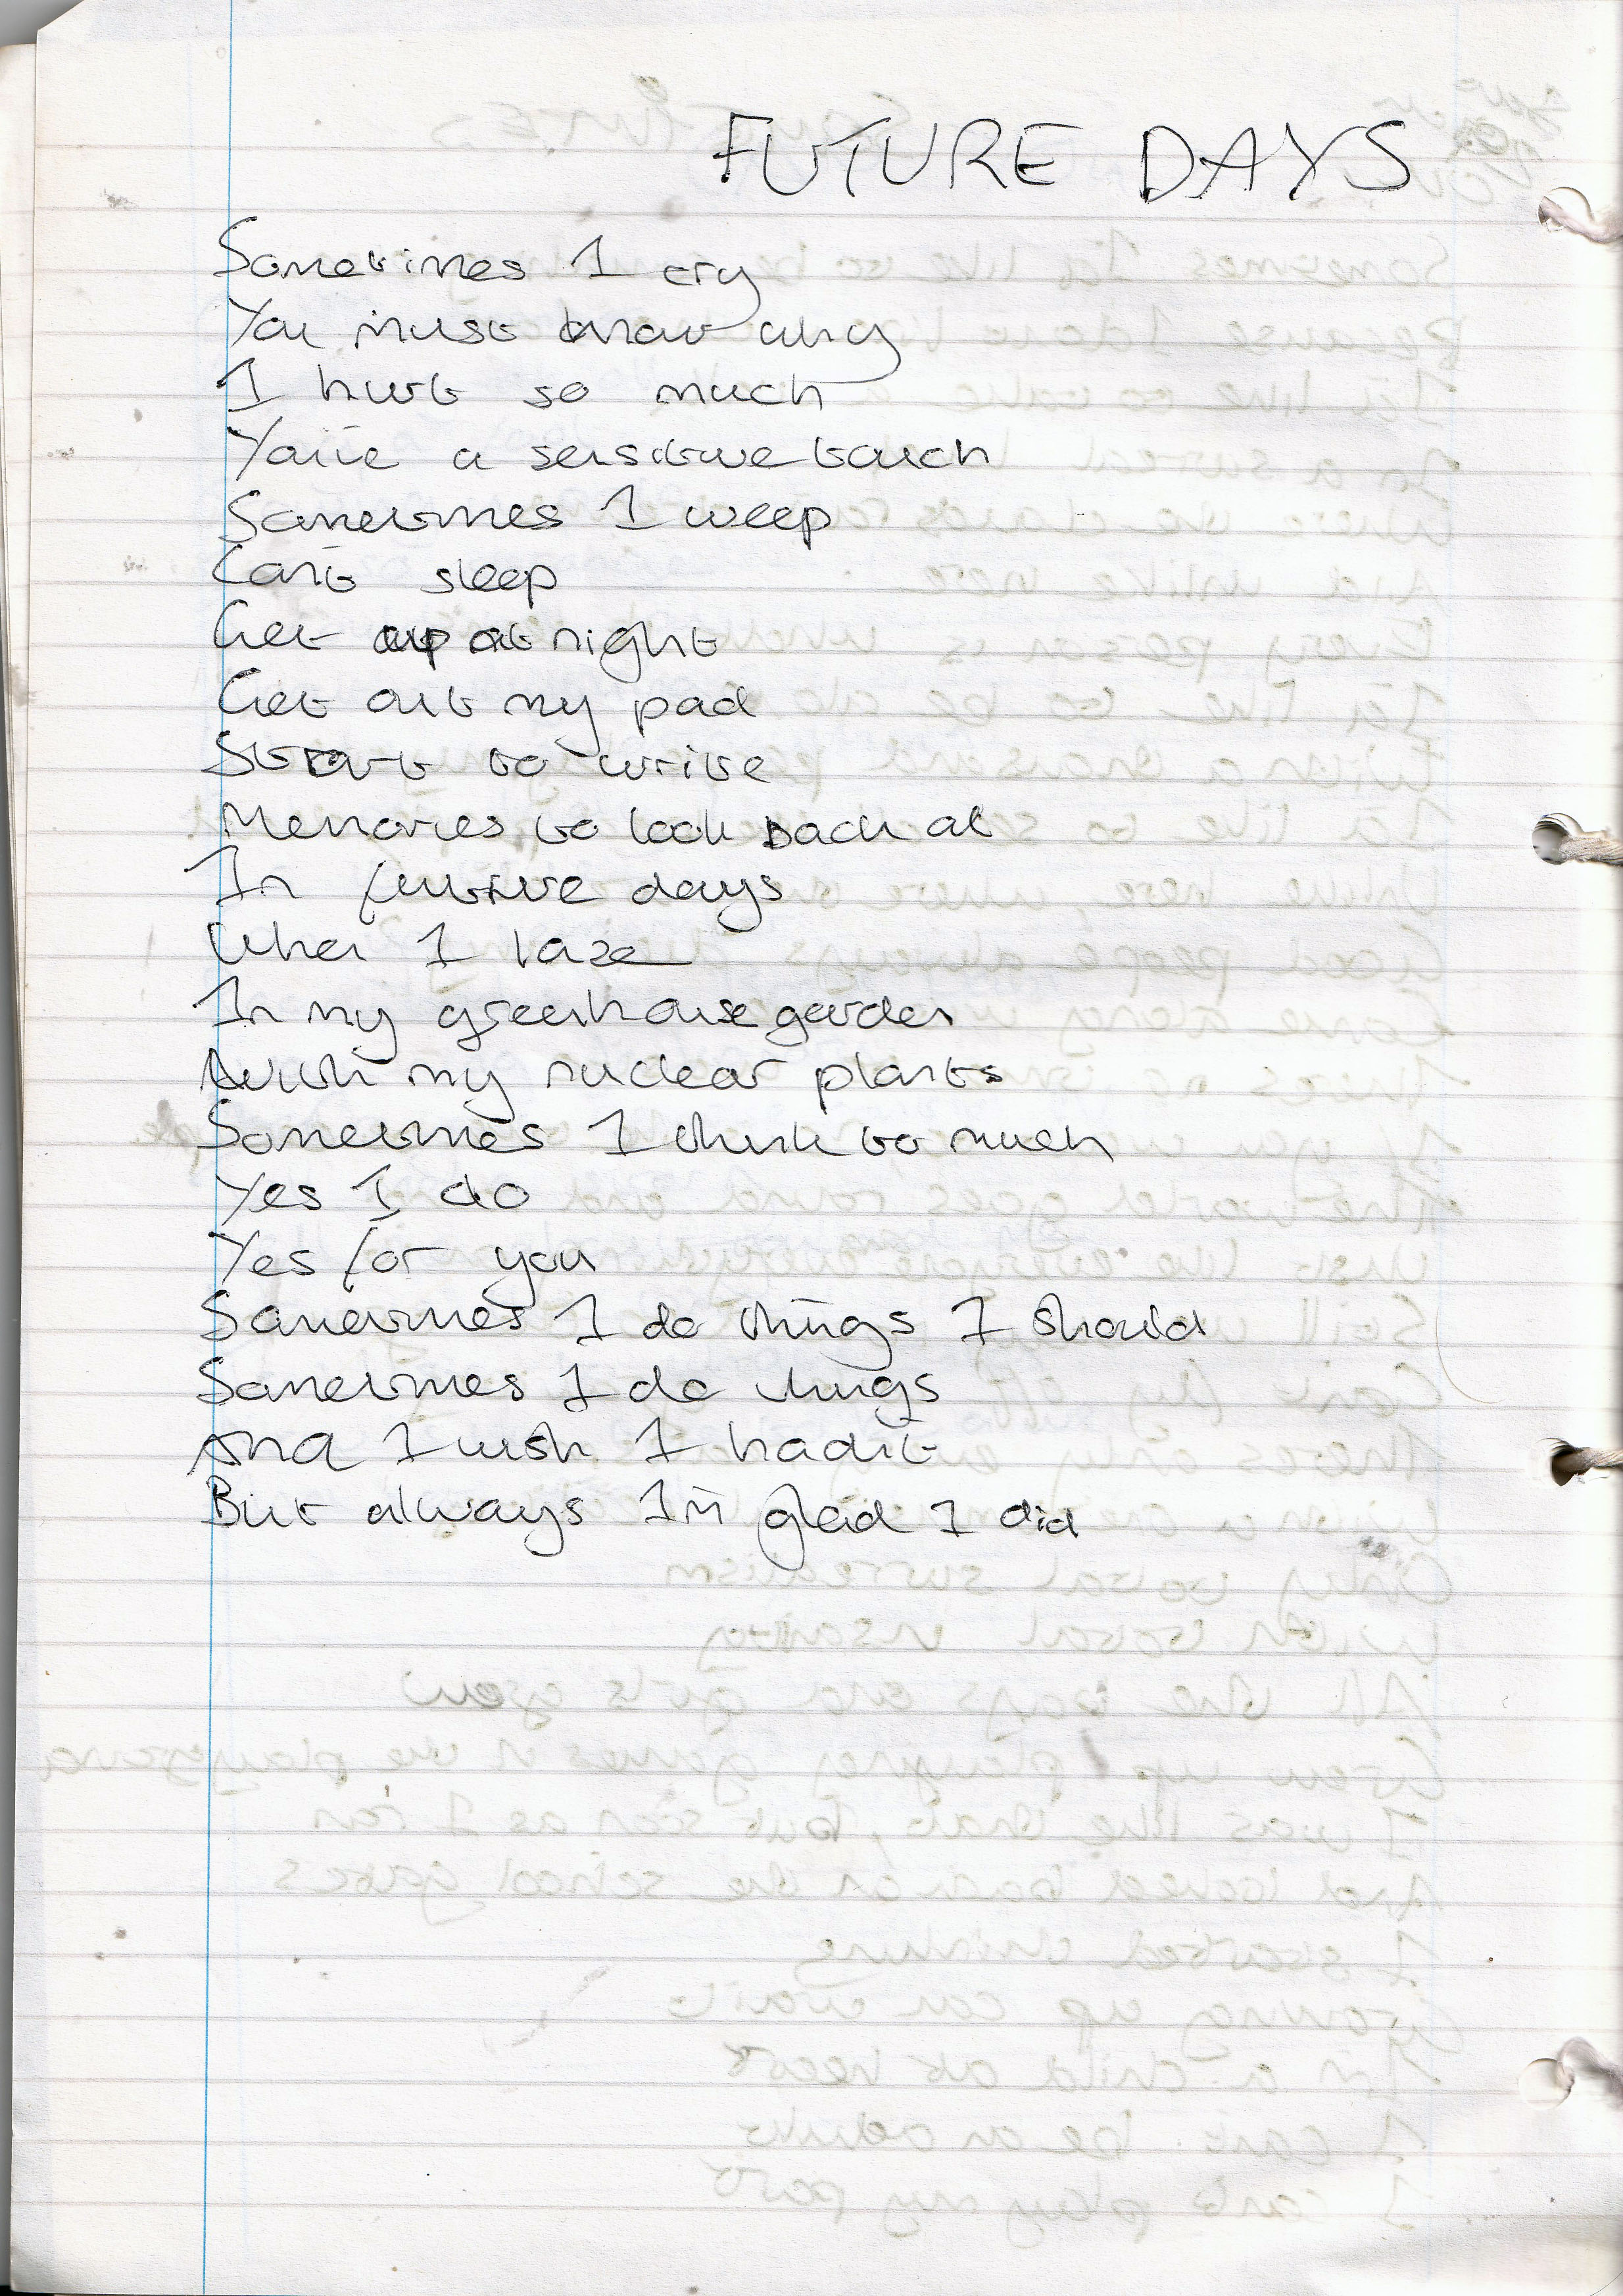 FUTURE DAYS
Sometimes I cry
You must know why
I hurt so much
You're a sensitive touch
Sometimes I weep
Can't sleep
Get up at night
Get out my pad
Start to write
Memories to look back at
In future days
When I laze
In my greenhouse garden
With my nuclear plants
Sometimes I think to much
Yes I do
Yes for you
Sometimes I do things I should
Sometimes I do things
And I wish I hadn't
But always I'm glad I did